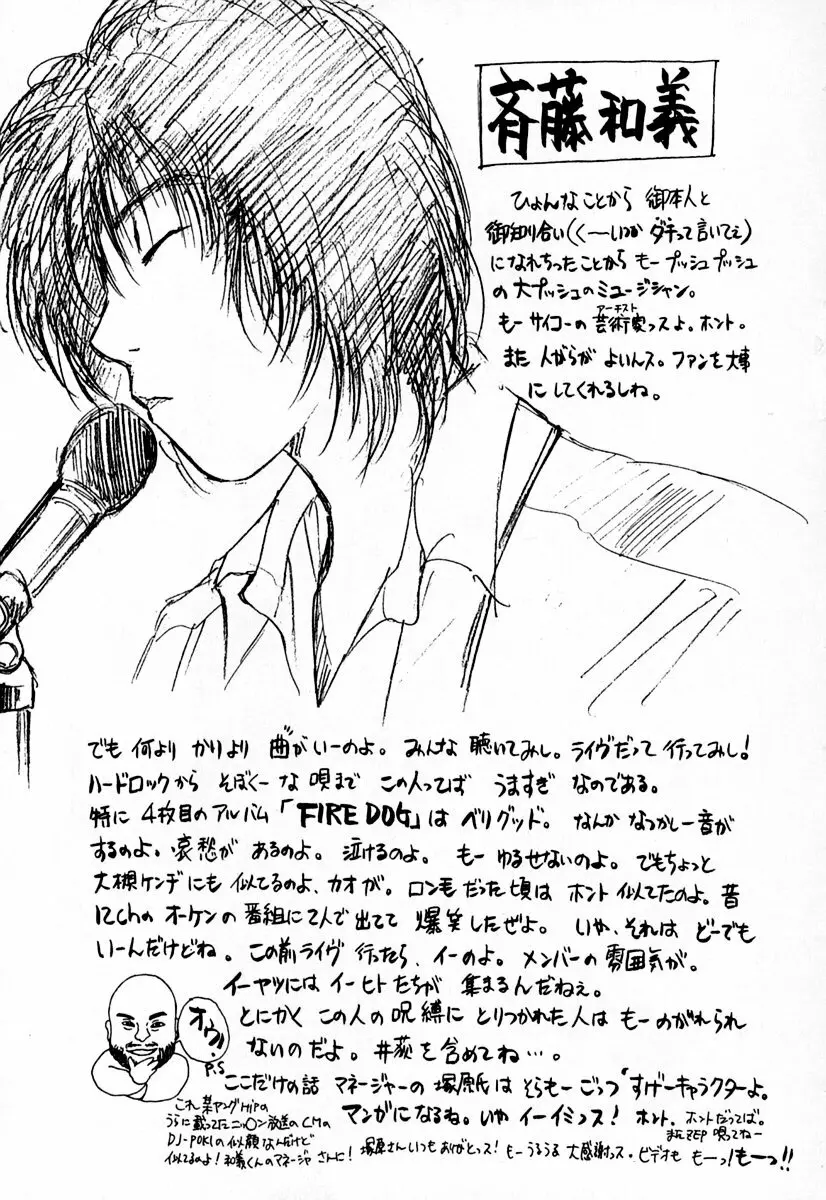 斉藤和義
ひょんなことから 御本人と
御知り合い(くーいつか ダチって言いてぇ)
になれちったことから もープッシュプッシュ
の大プッシュのミュージシャン。
もー サイコーの 芸術家ッスよ。ホント。
アーチスト
また 人がらが よいんス。ファンを大事
にしてくれるしね。
でも 何より かにより 曲がいーのよ。みんな 聴いてみし。ライヴだって 行ってみし!
ハードロックから そぼくーな唄まで この人ってば うますぎ なのである。
特に 4枚目のアルバム「FIRE DOG」は ベリグッド。なんか なつかしー音が
するのよ。哀愁が あるのよ。泣けるのよ。もー ゆるせないのよ。でもちょっと
大槻ケンヂにも 似てるのよ、カオが。ロン毛だった頃は ホント似てたのよ。昔
12chの オーケンの 番組に 2人で 出てて 爆笑したぜよ。いや、それは どーでも
いーんだけどね。この前 ライヴ 行ったら、イーのよ。メンバーの 雰囲気が。
イーヤツには イーヒトたちが 集まるんだねぇ。
とにかく この人の 呪縛に とりつかれた人は もーのがれられ
ないのだよ。井荻を含めてね…。
オウ!
P.S
ここだけの話 マネージャーの 塚原氏は そらもー ごっつ すげーキャラクターよ。
マンガになるね。いや イーイミっス! ホント。ホントだってば。
またZEP 唄ってねー
これ 某ヤングHipの
うらに載ってたニッ〇ン放送のCMの
DJ-POKIの似顔なんだけど
似てるのよ!和義くんのマネージャさんに!
塚原さんいつもありがとっス! もーうるうる 大感謝っス。ビデオも もーっ!もーっ!!